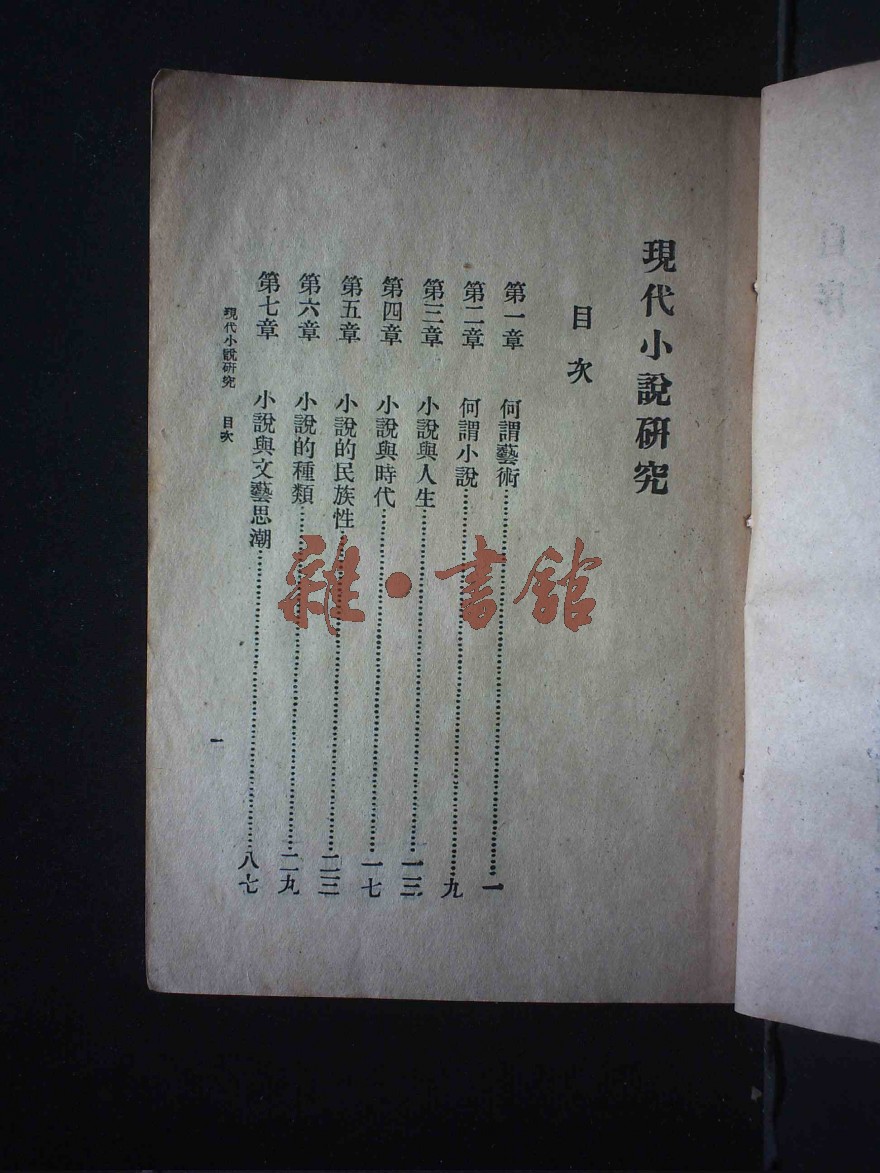 自序
現代小說研究
目次
第一章 何謂藝術………一
第二章 何謂小說………九
第三章 小說與人生………一三
第四章 小說與時代………一七
第五章 小說的民族性………二三
第六章 小說的種類………二九
第七章 小說與文藝思潮………八七
現代小說研究 目次
一
雜·書館